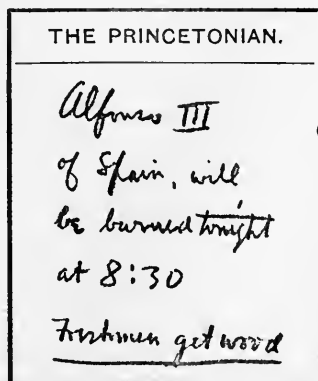 THE PRINCETONIAN.
Alfonso III
of Spain, will
be burned tonight
at 8:30
Freshmen get wood